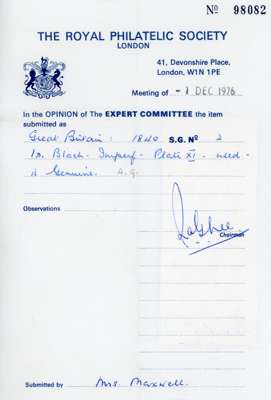 Nº 98082
THE ROYAL PHILATELIC SOCIETY
LONDON
41, Devonshire Place,
London, W1N 1PE
Meeting of - 1 DEC 1976
In the OPINION of The EXPERT COMMITTEE the item
submitted as
Great Britain: 1840 S.G. Nº 2
1d. Black. Imperf. Plate XI. used.
is Genuine.
Observations
Chairman
Submitted by Mrs. Maxwell.